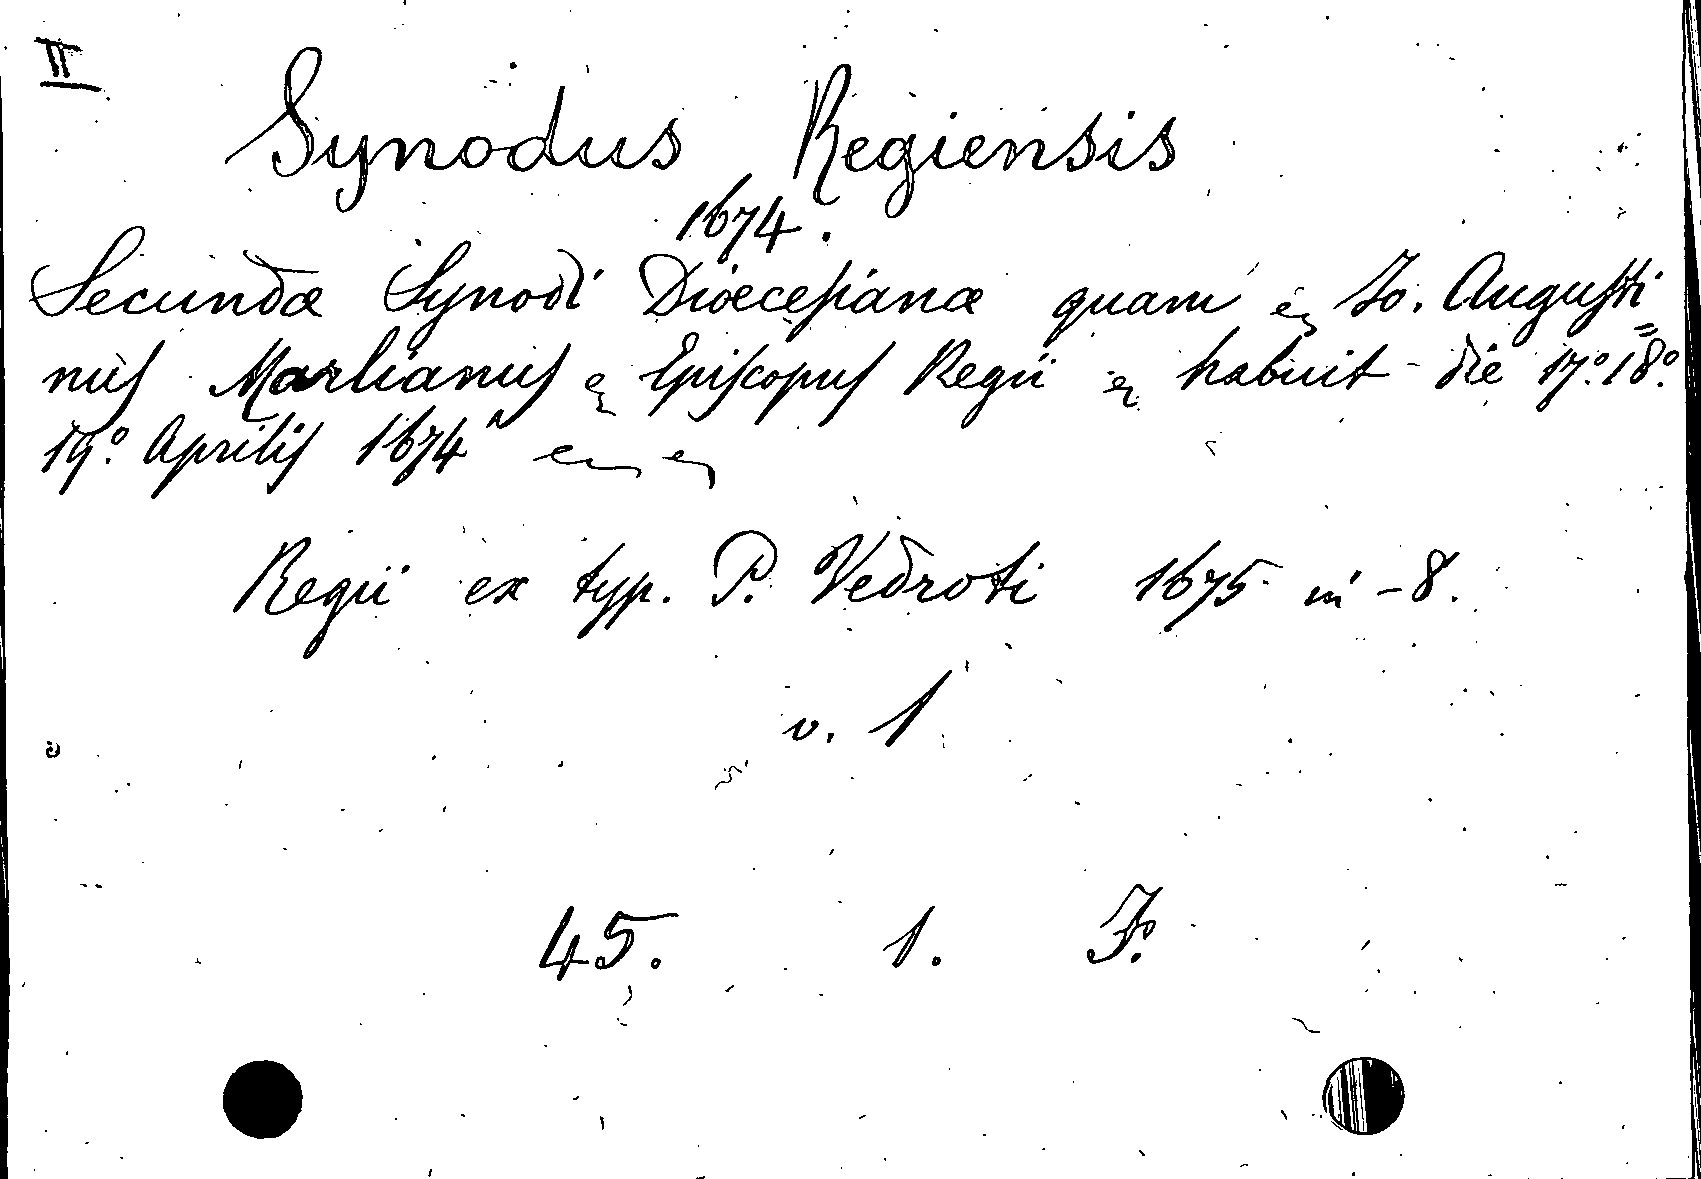 II
Synodus Regiensis
1674.
Secundæ Synodi Diœcesianæ quam & Io. Augusti=
nus Marlianus & Episcopus Regii & habuit die 17.° 18.°
19.° Aprilis 1674
Regii ex typ. P. Vedroti 1675 in -8.
v. 1
45. 1. F.